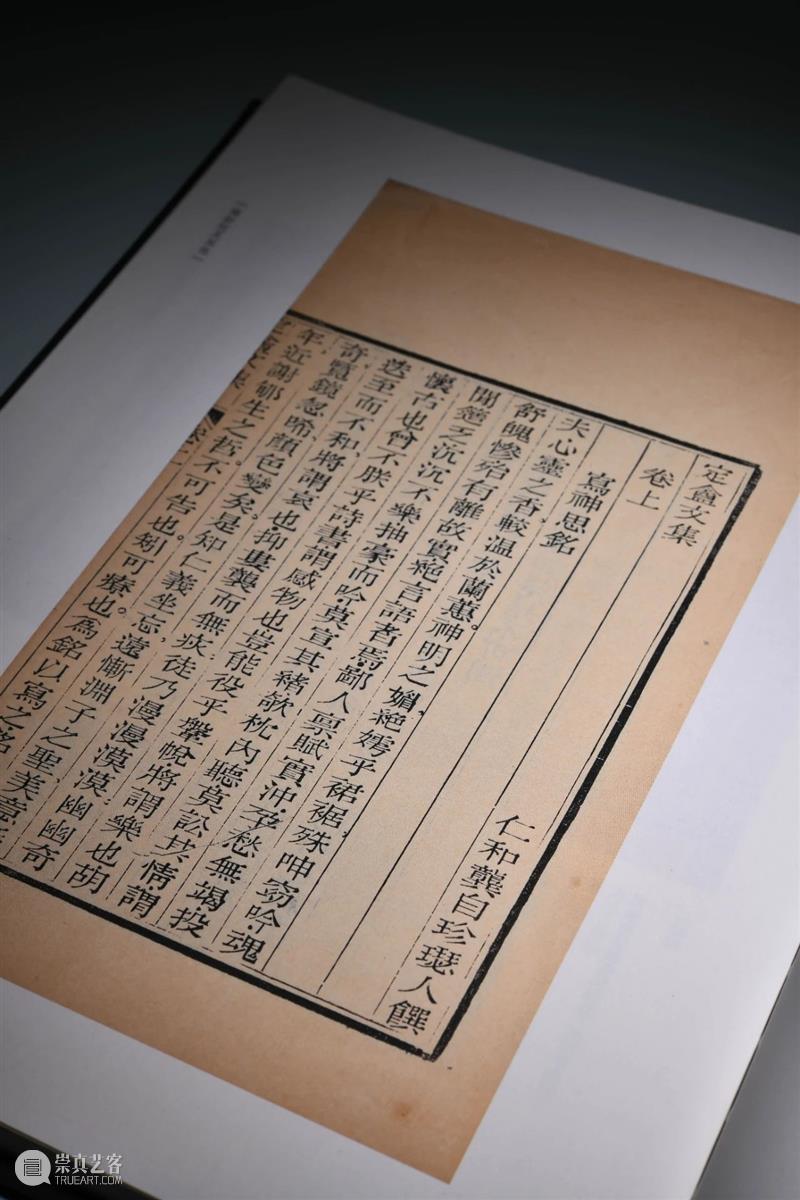 定盦文集　仁和龔自珍璱人饌
卷上
寫神思銘
夫心靈之香較温於蘭蕙。神明之媚絕嫮乎裙裾殊呻窈吟魂
舒魄慘殆有離故實絕言語者焉鄙人禀賦實沖孕愁無竭投
閒簉乏沉沉不樂抽豪而吟莫宣其緒欹枕內聽莫訟其情謂
懷古也曾不朕乎詩書謂感物也豈能役乎鞶帨將謂樂也胡
迭至而不和將謂哀也抑屢襲而無疢徒乃漫漫漠漠幽幽奇
奇覽鏡忽唏顏色變矣。是知仁義坐忘遠慚淵子之聖美意
年近謝郇生之哲。不可告也。矧可療也。為銘以寫之銘
崇真艺客
TRUEART.COM